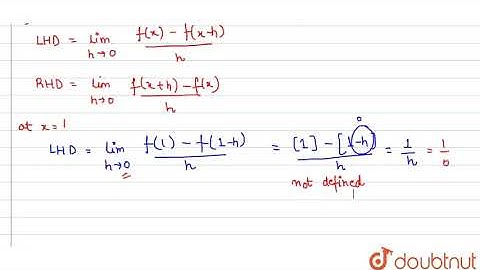 LHD = lim h→0 f(x) - f(x-h) / h
RHD = lim h→0 f(x+h) - f(x) / h
at x=1
LHD = lim h→0 f(1) - f(1-h) / h = [1] - [1-h] / h = 1/h = 1/0
0
not defined
doubtnut